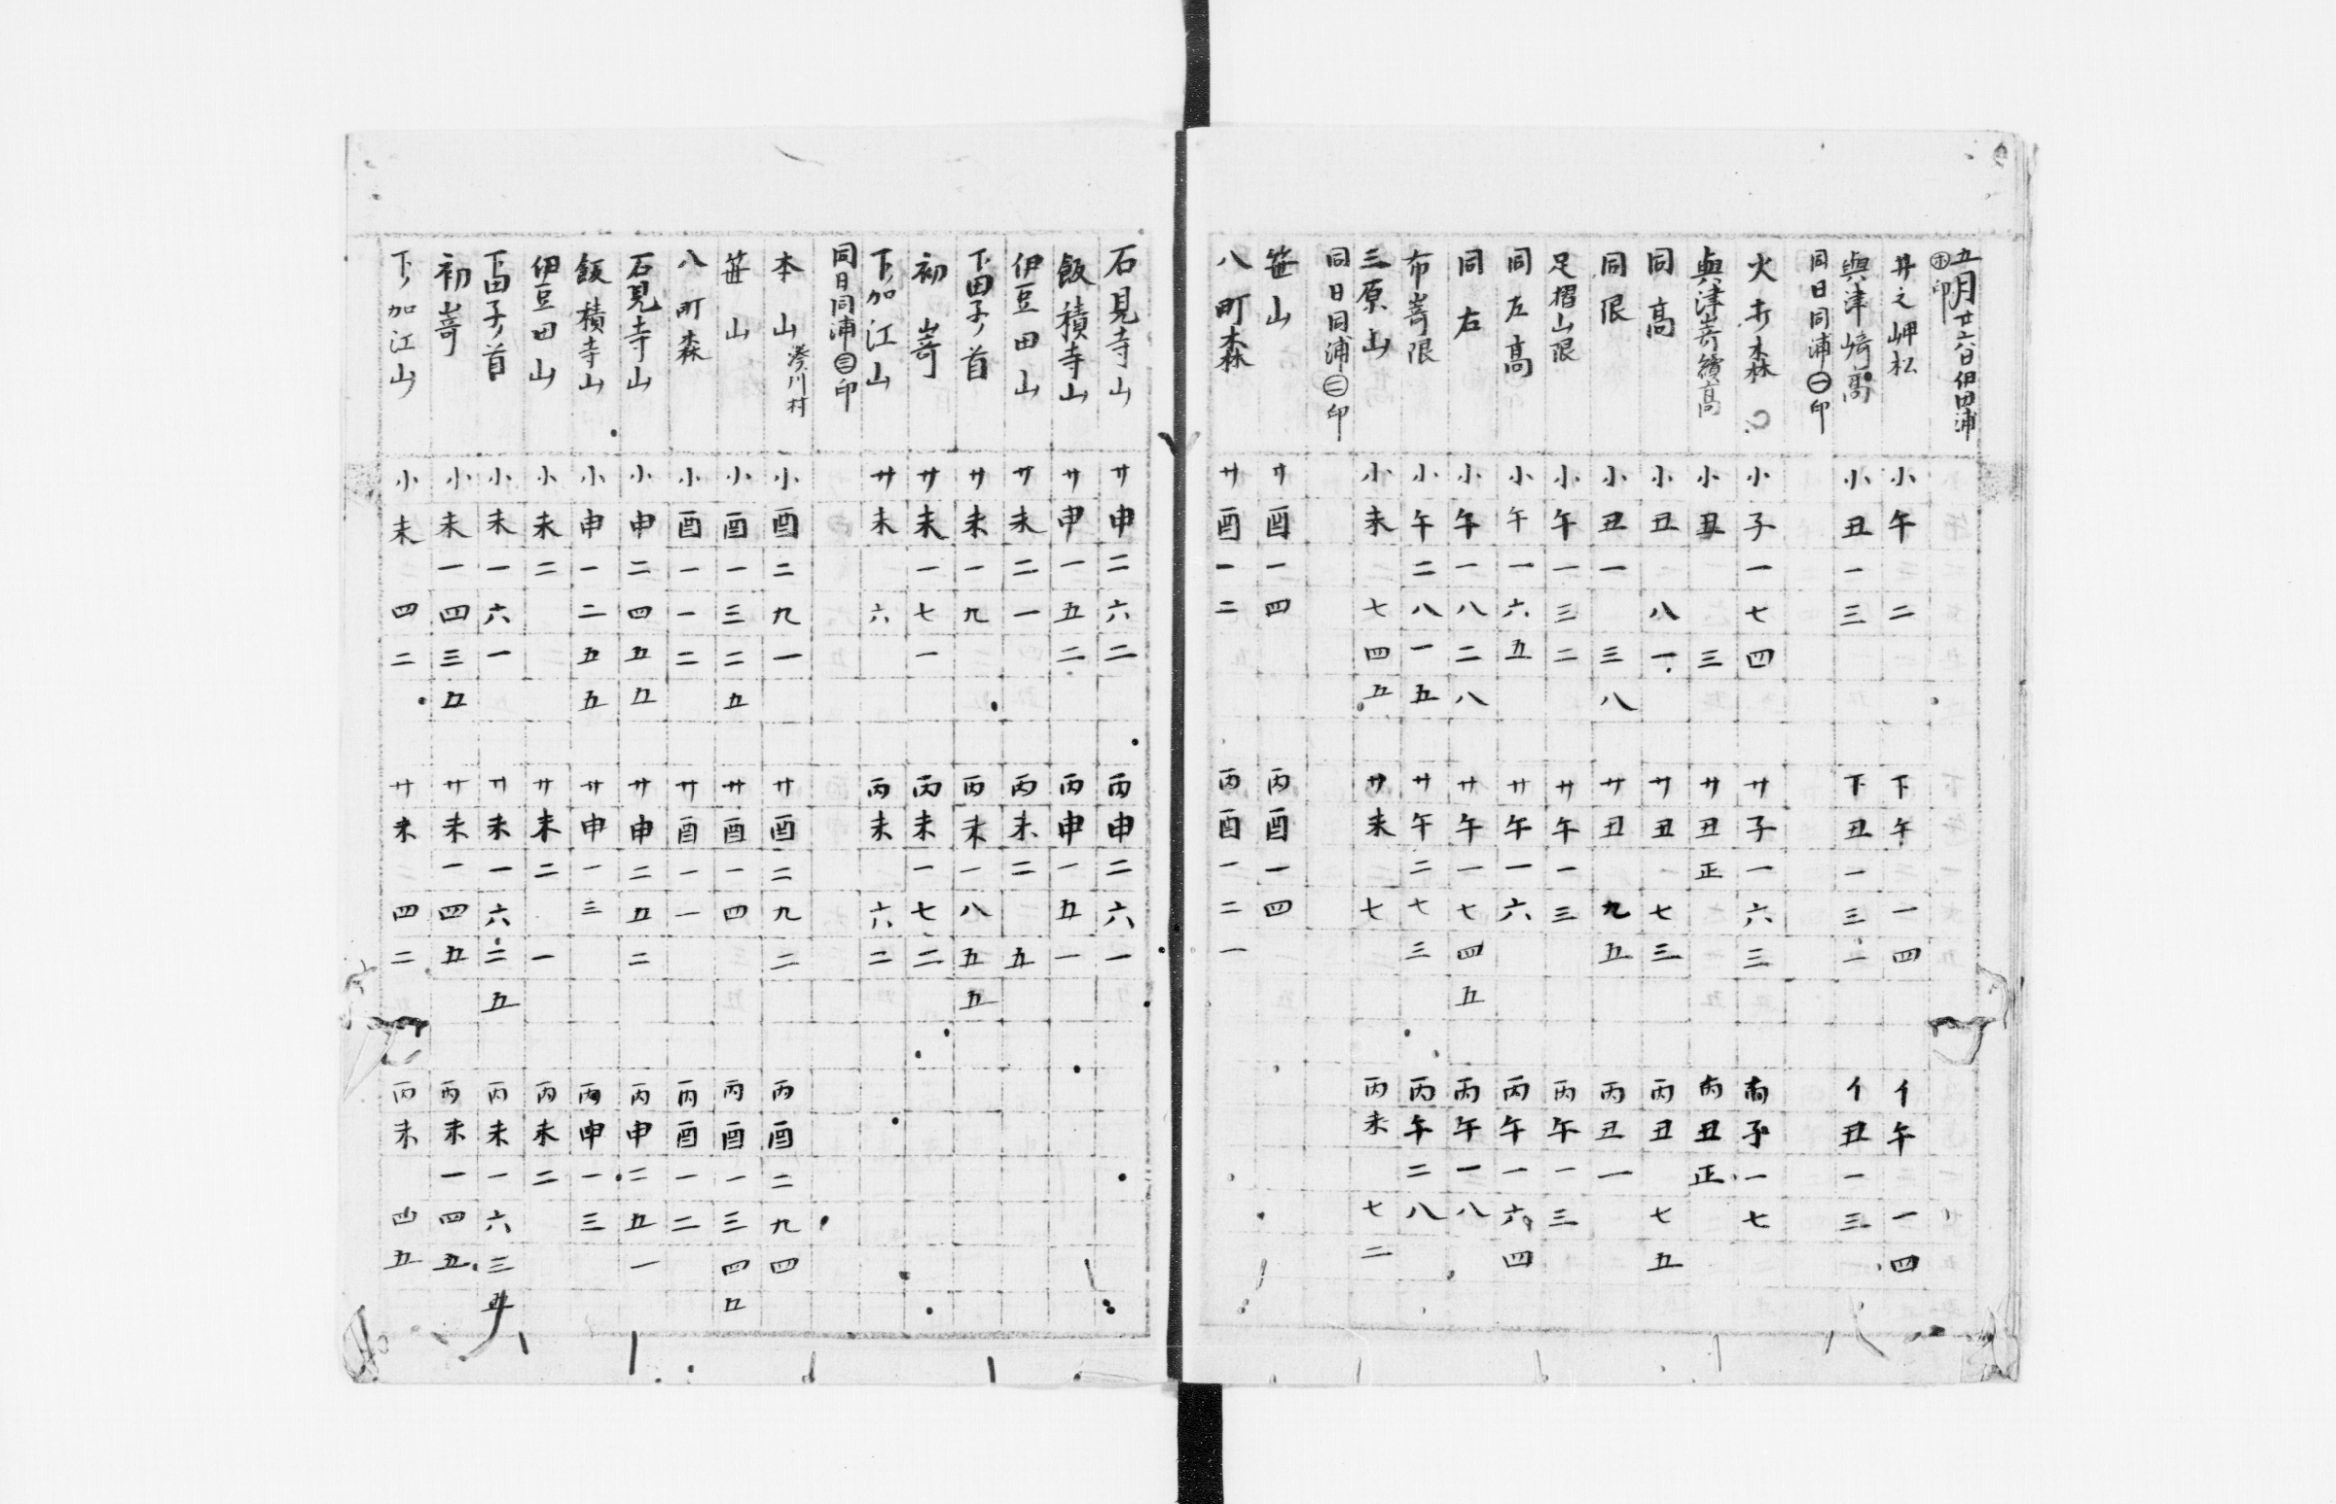 五月廿六日伊田浦
㊍印
井之岬松 小午二 下午一四 イ午一四
與津崎高 小丑一三 下丑一三一 イ丑一三
同日同浦㊀印
火打森 小子一七四 廿子一六三 丙子一七
與津嵜續高 小丑三 廿丑正 丙丑正
同高 小丑八一 廿丑七三 丙丑七五
同限 小丑一三八 廿丑九五 丙丑一
足摺山限 小午一三二 廿午一三 丙午一三
同左高 小午一六五 廿午一六 丙午一六四
同右 小午一八二八 廿午一七四五 丙午一八
布嵜限 小午二八一五 廿午二七三 丙午二八
三原山 小未七四五 廿未七 丙未七二
同日同浦㊁印
笹山 廿酉一四 丙酉一四
八町森 廿酉一二 丙酉一二一
石見寺山 廿申二六二 丙申二六一
飯積寺山 廿申一五二 丙申一五一
伊豆田山 廿未二一 丙未二五
下田子ノ首 廿未一九 丙未一八五五
初嵜 廿未一七一 丙未一七二
下加江山 廿未六 丙未六二
同日同浦㊂印
本山 湊川村 小酉二九一 廿酉二九二 丙酉二九四
笹山 小酉一三二五 廿酉一四 丙酉一三四五
八町森 小酉一一二 廿酉一一 丙酉一二
石見寺山 小申二四五五 廿申二五二 丙申二五一
飯積寺山 小申一二五五 廿申一三 丙申一三
伊豆田山 小未二 廿未二一 丙未二
下田子ノ首 小未一六一 廿未一六二五 丙未一六三五
初嵜 小未一四三五 廿未一四五 丙未一四五
下加江山 小未四二 廿未四二 丙未四五